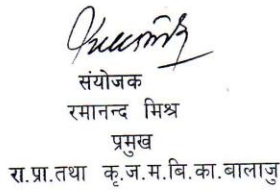 संयोजक
रमानन्द मिश्र
प्रमुख
रा.प्रा.तथा कृ.ज.म.बि.का.बालाजु